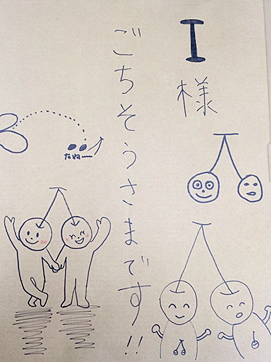 I様
ごちそうさまです!!
たねー